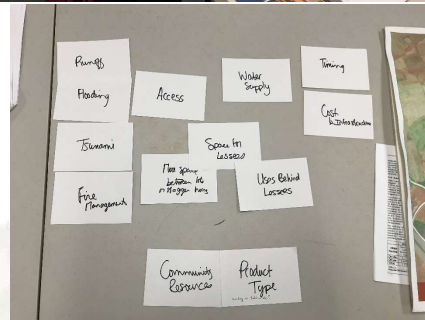 Runoff
Flooding
Tsunami
Fire
Management
Access
Water
Supply
Timing
Cost
& Infrastructure
Space for
Lessees
More space
between lots
Uses Behind
Lessees
Community
Resources
Product
Type